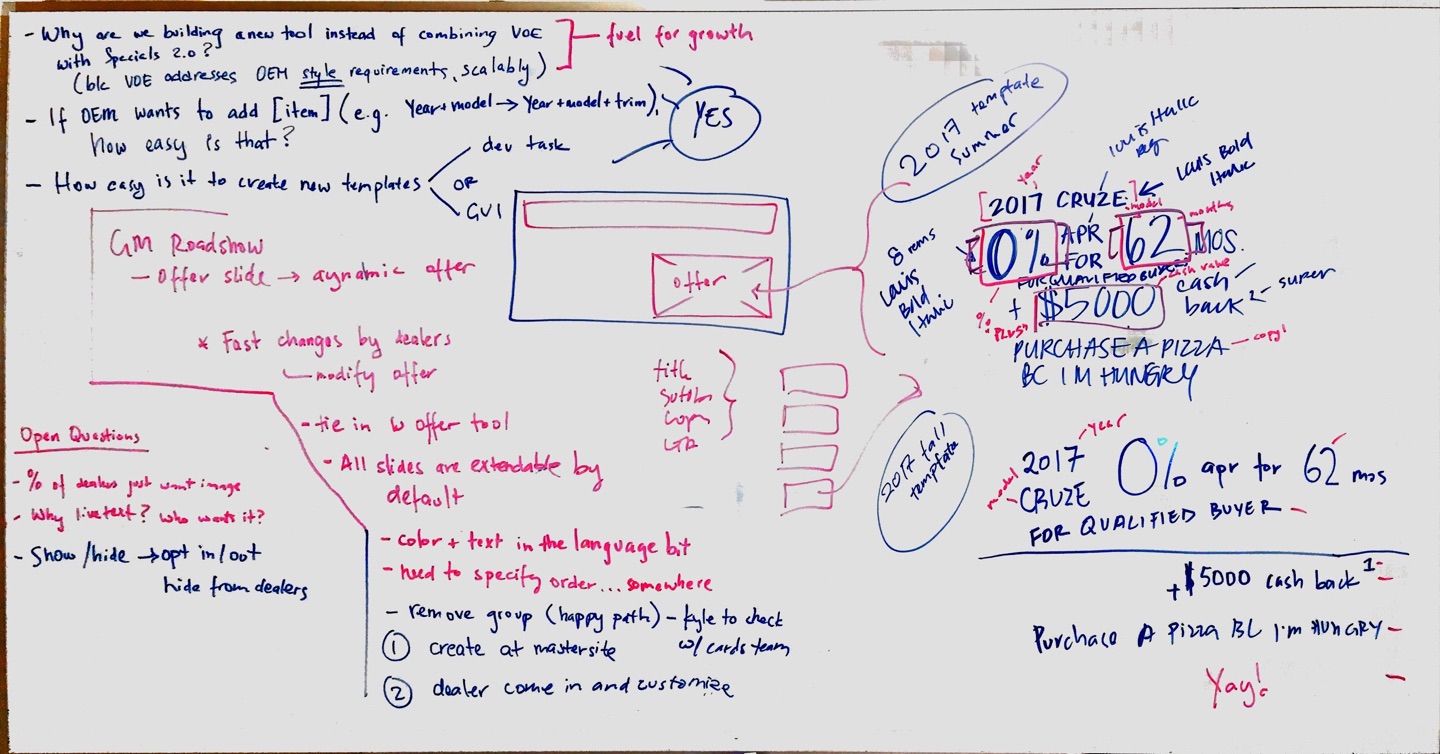 - Why are we building a new tool instead of combining VOE
with Specials 2.0?
(b/c VOE addresses OEM style requirements, scalably)
fuel for growth
- If OEM wants to add [item] (e.g. Year+model → Year+model+trim),
how easy is that?
YES
- How easy is it to create new templates
dev task
OR
GUI
GM Roadshow
- Offer slide → dynamic offer
* Fast changes by dealers
modify offer
- tie in w offer tool
- All slides are extendable by
default
- color + text in the language bit
- need to specify order... somewhere
- remove group (happy path) - Kyle to check
w/ cards team
1 create at mastersite
2 dealer come in and customize
Open Questions
- % of dealers just want image
- Why live text? Who wants it?
- Show/hide → opt in/out
hide from dealers
Offer
title
copy
2017 template
summer
2017 fall
template
8 rems
Louis
Bold
Italic
Louis Bold
Italic
Louis Italic
reg
year
[2017 CRUZE]
model
0% APR
FOR
62 MOS.
months
FOR QUALIFIED BUYER
%
PLUS
+ $5000
cash value
cash
back 2 - super
PURCHASE A PIZZA - copy1
BC I'M HUNGRY
2017 - year
model - CRUZE
0% apr for 62 mos
FOR QUALIFIED BUYER -
+ $5000 cash back 1 -
Purchace A Pizza BC I'm HUNGRY -
Yay!